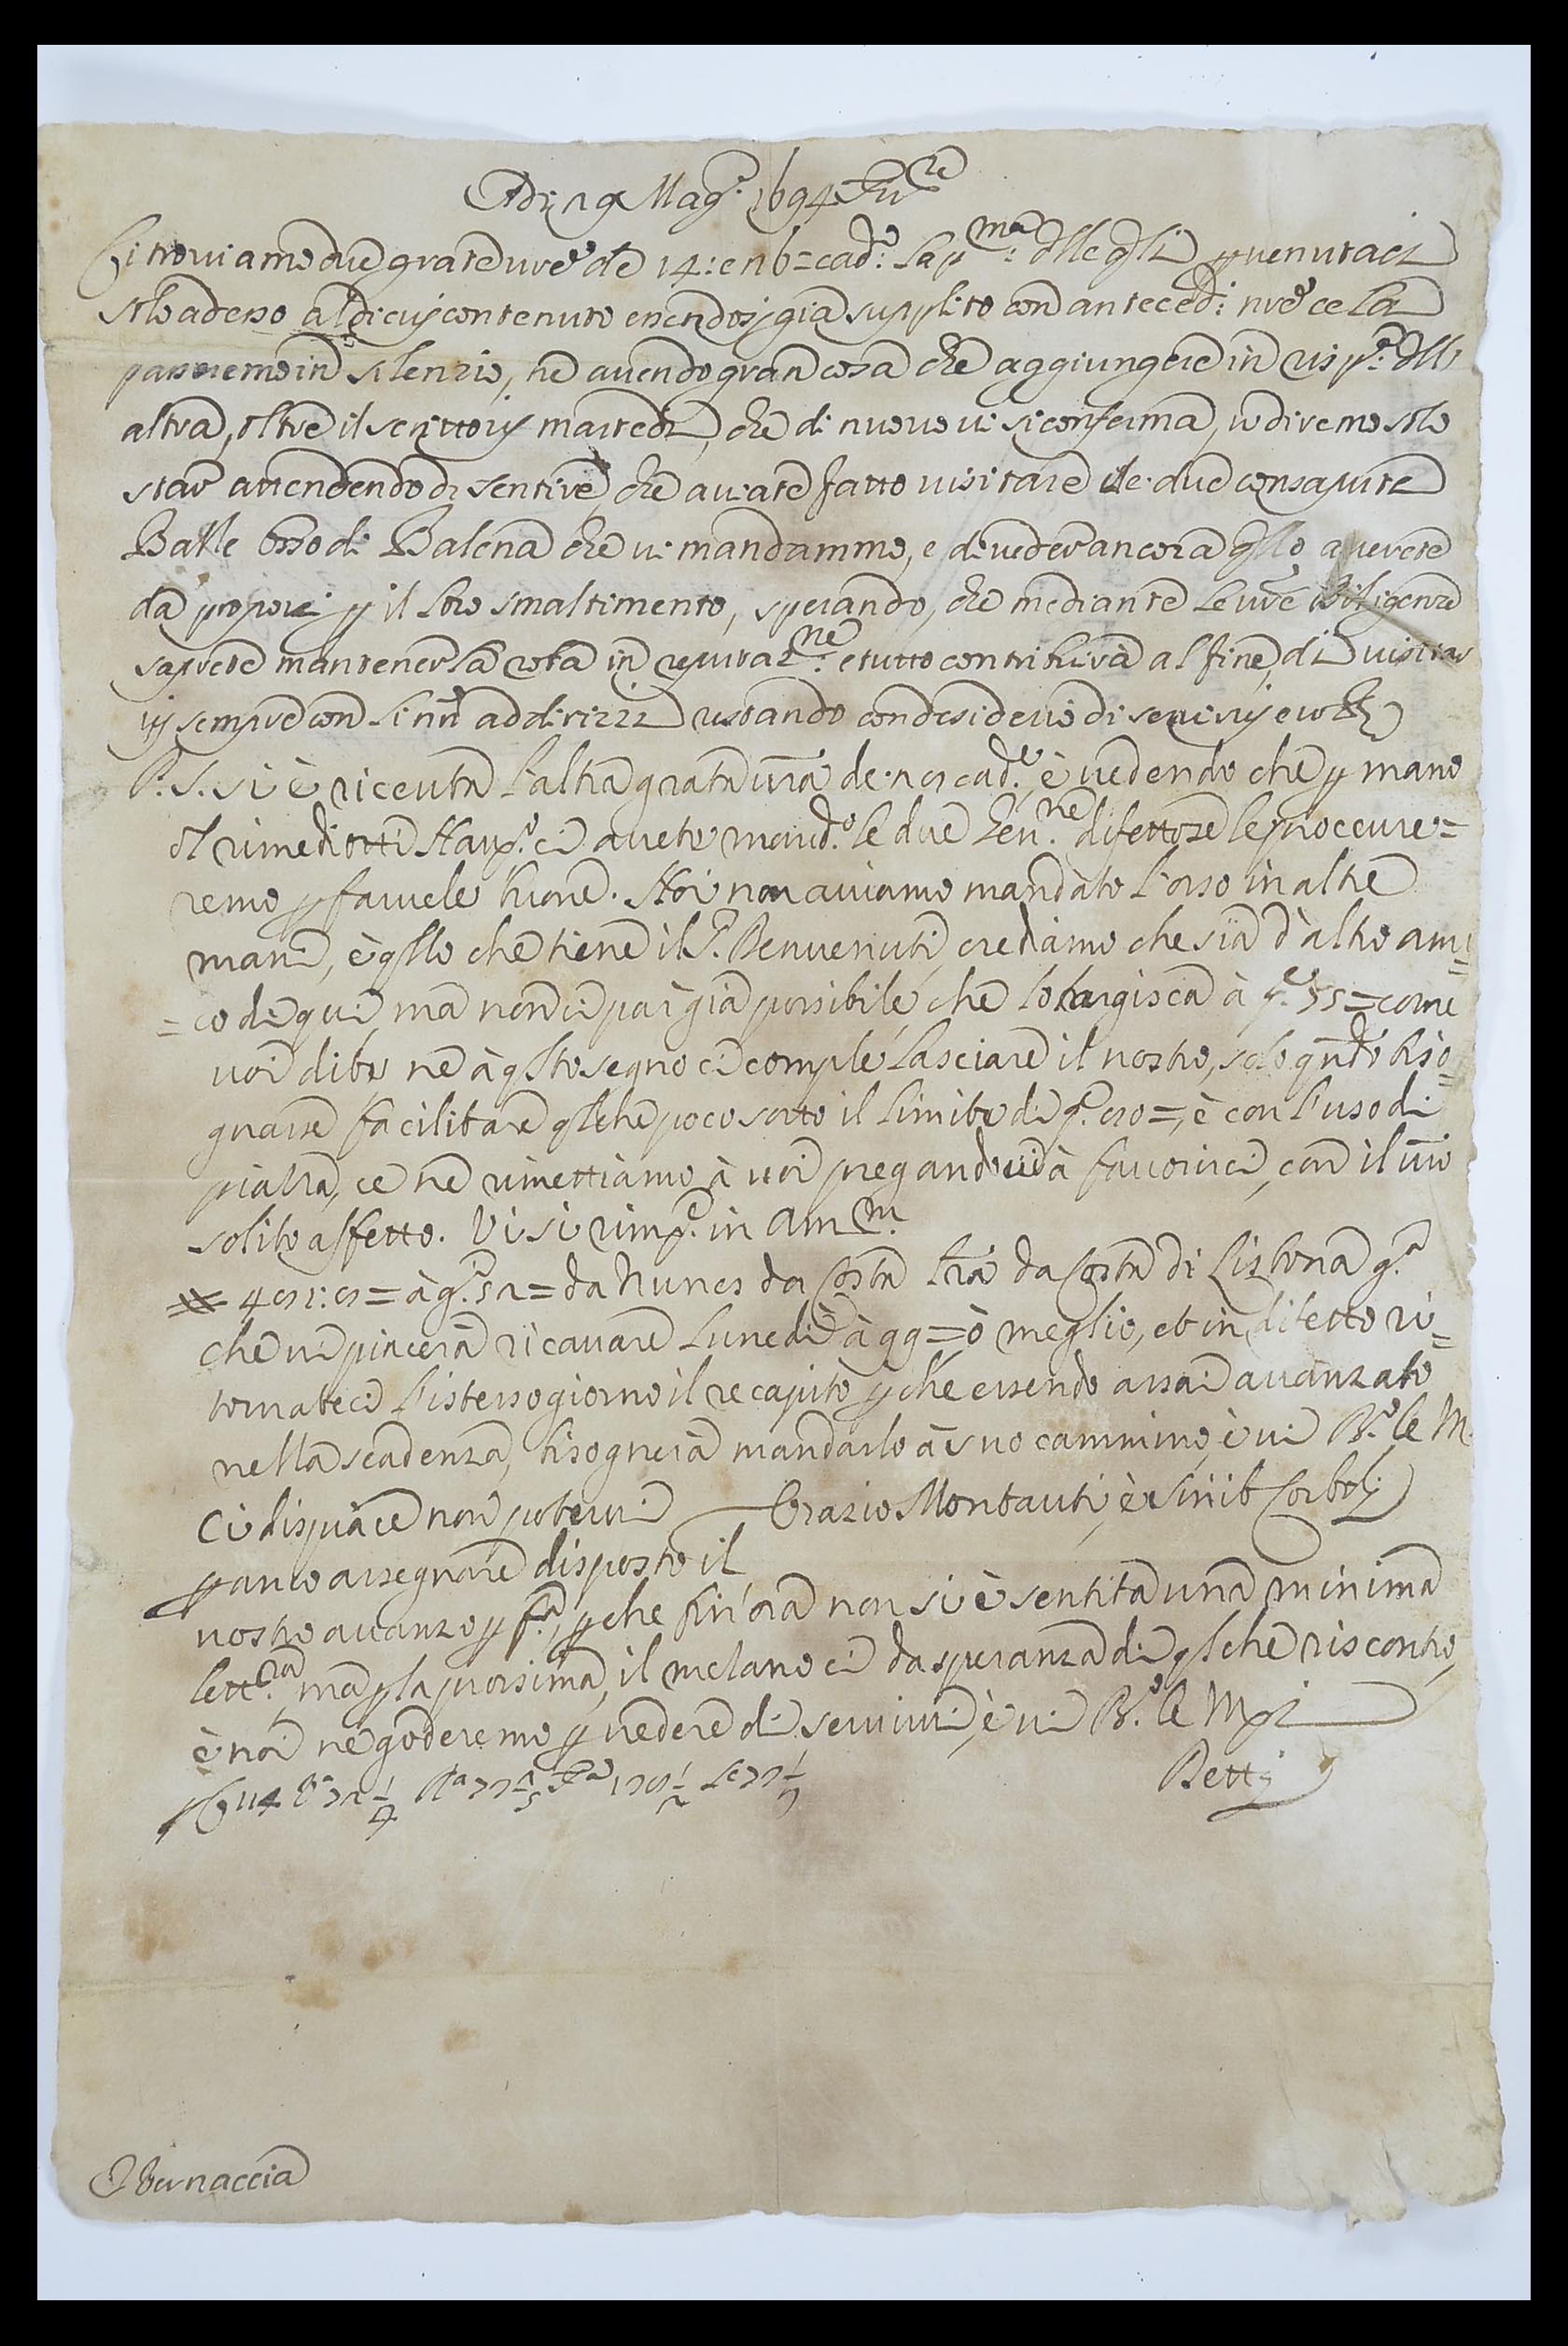 Adi 29 Mag.o 1694 Fir.re
Ci troviamo due grate vre de 14: e 26= cad.e la p.ma: dlle qli pvenutaci
solo adesso al di cuj contenuto essendosj gia supplito con anteced.i nre ce la
passeremo in silenzio, ne avendo gran cosa che aggiungere in risp.a dll
altra, oltre il scrittovj martedi, che di nuovo vi si conferma, vo diremo solo
star attendendo di sentire, che aviate fatto visitare le due consapute
Balle Osso di Balena che vi mandammo, e di veder ancora qllo averete
da proporci p il loro smaltimento, sperando, che mediante le vre diligenze
saprete mantener la roba in reputaz.ne: e tutto contribuirà al fine, di visitar
vj sempre con simili addirizzi restando con desiderio di servirvj e vo
P.S. si è riceuta l'altra grata vra de 29 cad.e, è vedendo che p mano
di rimediotti Nav.o ci avete mand.o le due difettose le procure=
remo p farvele buone. Noi non aviamo mandato l'osso in altre
mani, è qllo che tiene il S. Benvenuti, crediamo che sia d'altro ami
=co di qui ma non ci par già possibile, che lo largisca à p.e 55= come
voi dite ne à qsto segno ci comple lasciare il nostro, solo qndo biso=
gnasse facilitare qlche poco sotto il limite di p.e 60=, è con l'uso di
piazza, ce ne rimettiamo à voi pregandovi à favorirci, con il vro
solito affetto. Vi si rimp.e in
à g.a 52= da Nunes da Costa da Costa di Lisbona g.a
che vi piacerà ricavare Lunedì à gg= ò meglio, et in difetto ri=
tornateci l'istesso giorno il recapito pche essendo assai avanzato
nella scadenza, bisognerà mandarlo à suo cammino, è vi B.o le M.
Ci dispiace non potervi Orazio Montauti, è Sinib Corbolj
p anco assegnare disposto il
nostro avanzo p f.a, pche fin'ora non si è sentita una minima
lett.ra ma p la prossima, il melano ci da speranza di qlche riscontro,
è noi ne goderemo p vedere di servirvi, è vi B.o le M
Bettj